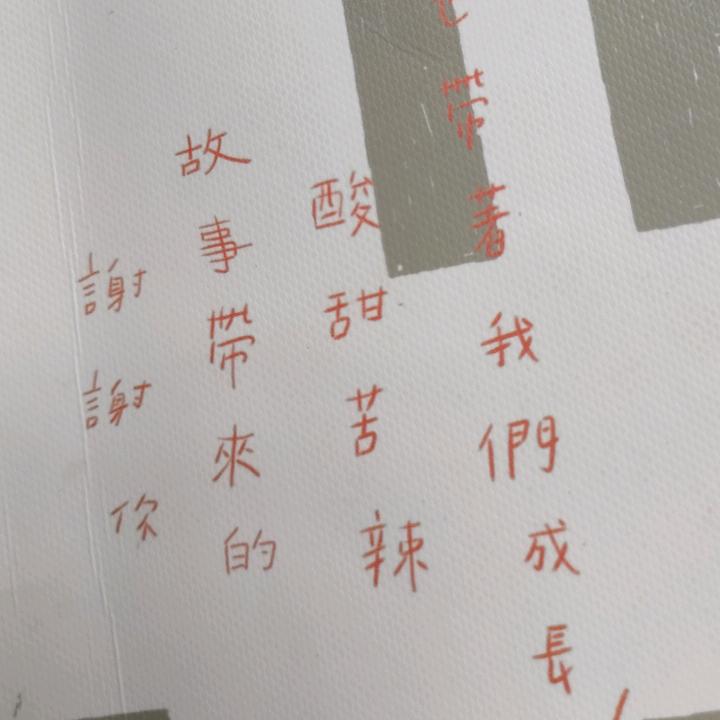 謝謝你
故事帶來的
酸甜苦辣
帶著我們成長